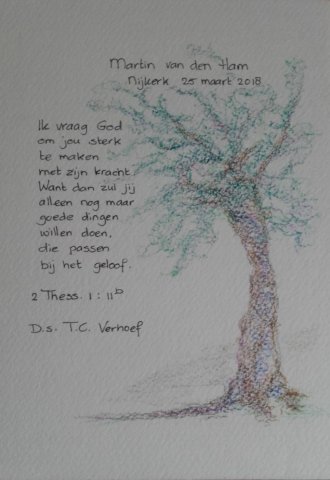 Martin van den Ham
Nijkerk 25 maart 2018
Ik vraag God
om jou sterk
te maken
met zijn kracht.
Want dan zul jij
alleen nog maar
goede dingen
willen doen,
die passen
bij het geloof.
2 Thess. 1 : 11b
D.s. T.C. Verhoef